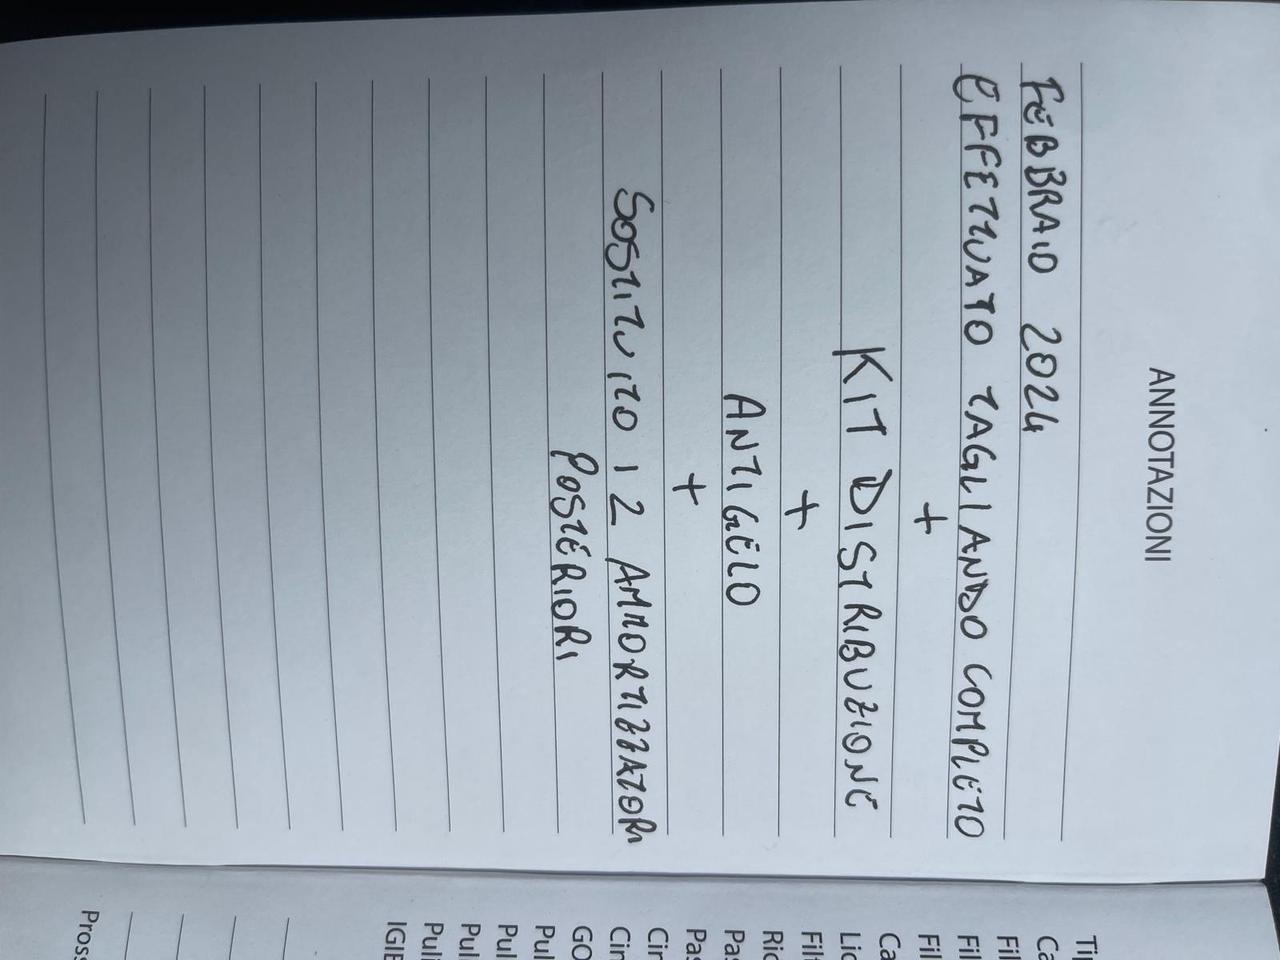 ANNOTAZIONI
FEBBRAIO 2024
EFFETTUATO TAGLIANDO COMPLETO
+
KIT DISTRIBUZIONE
+
ANTIGELO
+
SOSTITUITO I 2 AMMORTIZZATORI
POSTERIORI
Tip
Ca
Fil
Fil
Fil
Ca
Lic
Filt
Ric
Pas
Pas
Cin
Cin
GO
Pul
Pul
Pul
Puli
IGIE
Pross